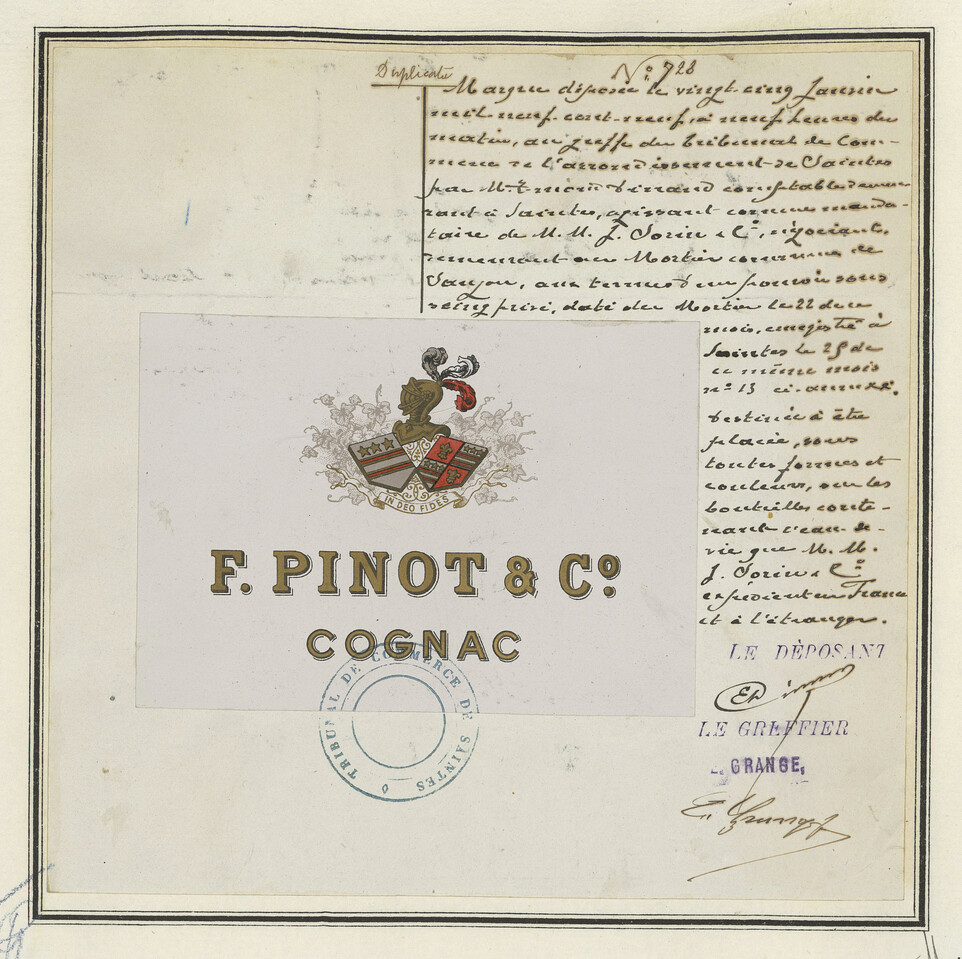 Duplicata
N° 728
Marque déposée le vingt-cinq Janvier
mil-neuf-cent-neuf, à neuf heures du
matin, au greffe du Tribunal de Com-
merce de l'arrondissement de Saintes
par Mr comptable demeu-
rant à Saintes, agissant comme manda-
taire de M. M. J. Sorin & Cie, négociants,
demeurant au Mortier commune de
Saujon, aux termes d'un pouvoir sous
seing privé, daté du Mortier le 22 de ce
mois, enregistré à
Saintes le 25 de
ce même mois
n° 13 ci-annexé.
Destinée à être
placée, sous
toutes formes et
couleurs, sur les
bouteilles conte-
nant l'eau-de-
vie que M. M.
J. Sorin & Cie
expédient en France
et à l'étranger.
IN DEO FIDES
F. PINOT & Co.
COGNAC
TRIBUNAL DE COMMERCE DE SAINTES
LE DÉPOSANT
LE GREFFIER
E. GRANGE,
E. Grange